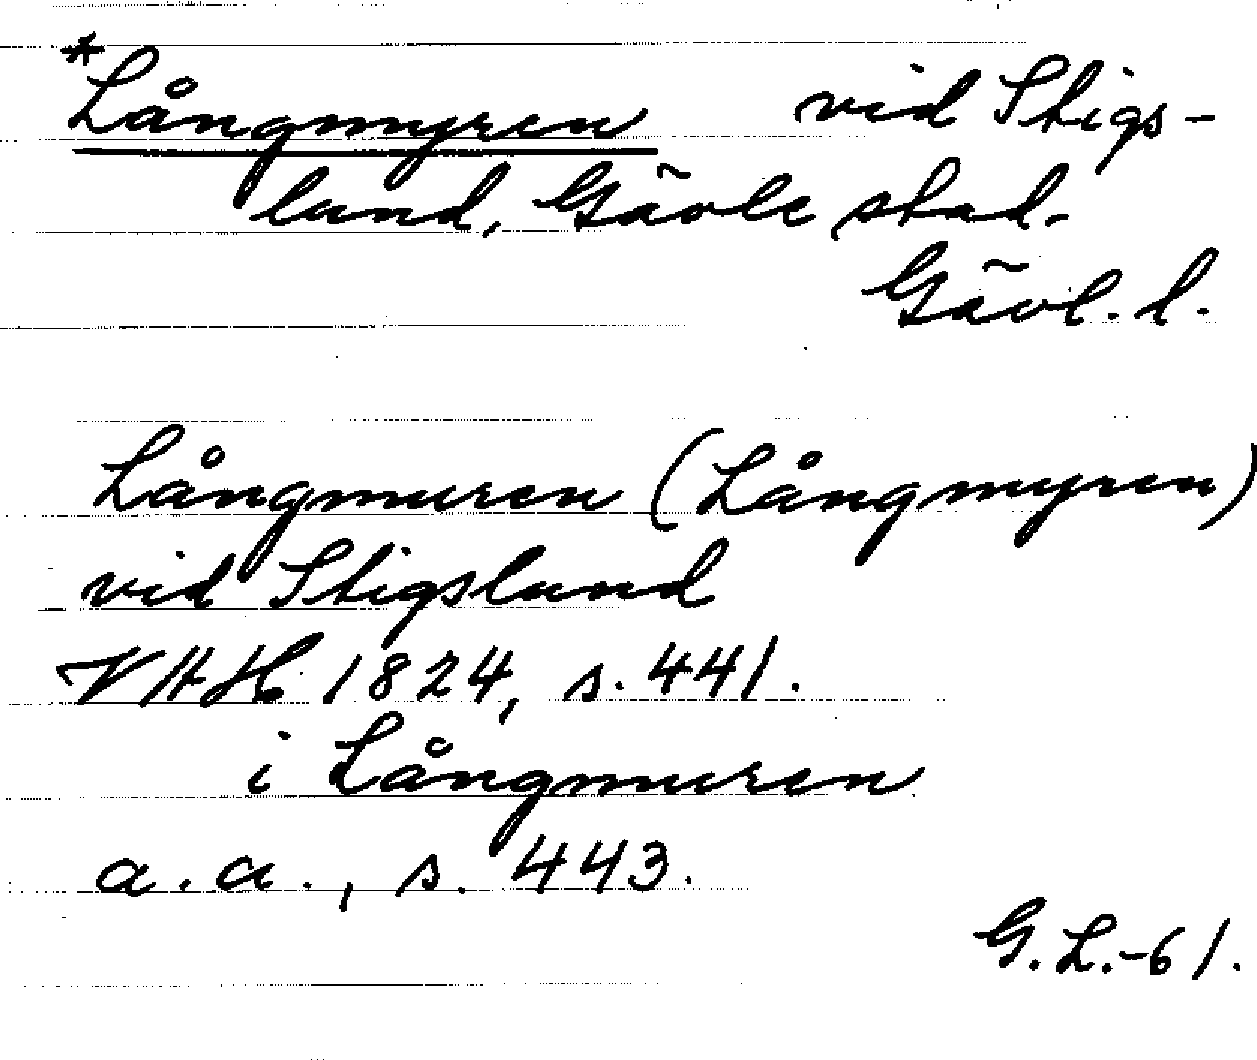 *Långmyren vid Stigs-
lund, Gävle stad.
Gävl. l.
Långmuren (Långmyren)
vid Stigslund
VHAH 1824, s. 441.
i Långmuren
a.a., s. 443.
G.L.-61.